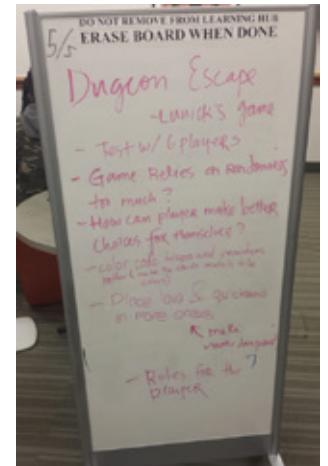 DO NOT REMOVE FROM LEARNING HUB
5/5
ERASE BOARD WHEN DONE
Dugeon Escape
- Lunick's game
- Test w/ 6 players
- Game Relies on Randomness
too much?
- How can player make better
choices for themselves?
- color code traps and
- Place lava & quicksand
in more areas
make
more dangerous
- Roles for the
player
?